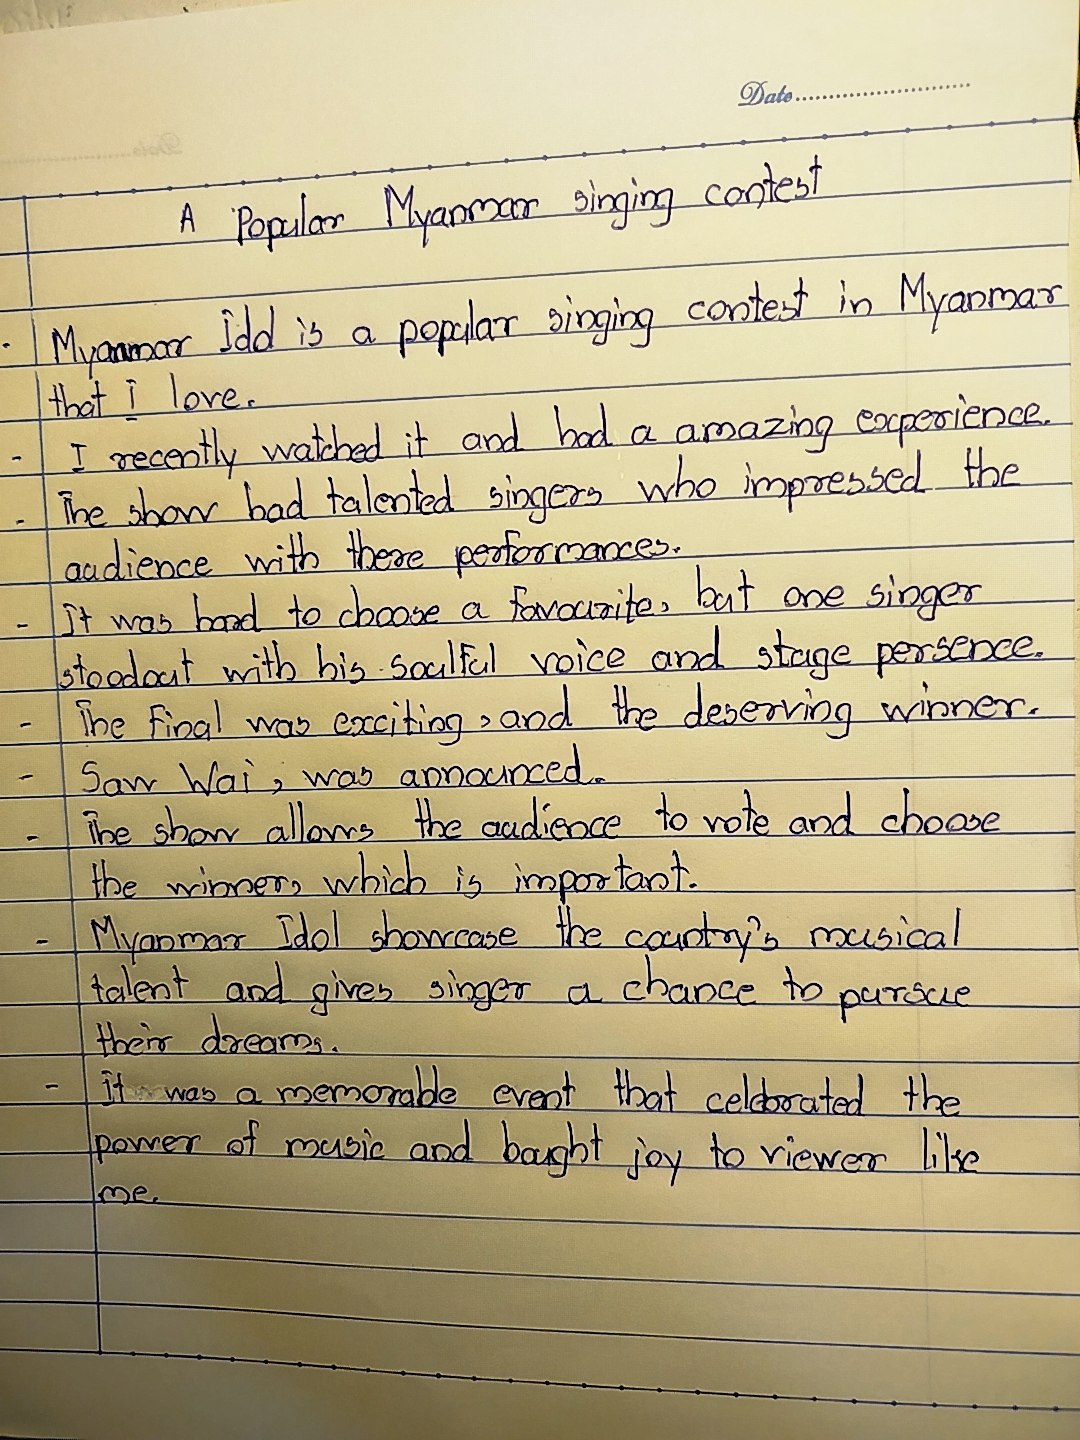 Date
A Popular Myanmar singing contest
. Myanmar Idol is a popular singing contest in Myanmar
that I love.
- I recently watched it and had a amazing experience.
- The show had talented singers who impressed the
audience with there performances.
- It was hard to choose a favourite, but one singer
stoodout with his soulful voice and stage persence.
- The final was exciting, and the deserving winner.
- Saw Wai, was announced.
- The show allows the audience to vote and choose
the winner, which is important.
- Myanmar Idol showcase the country's musical
talent and gives singer a chance to pursue
their dreams.
- It was a memorable event that celebrated the
power of music and bought joy to viewer like
me.